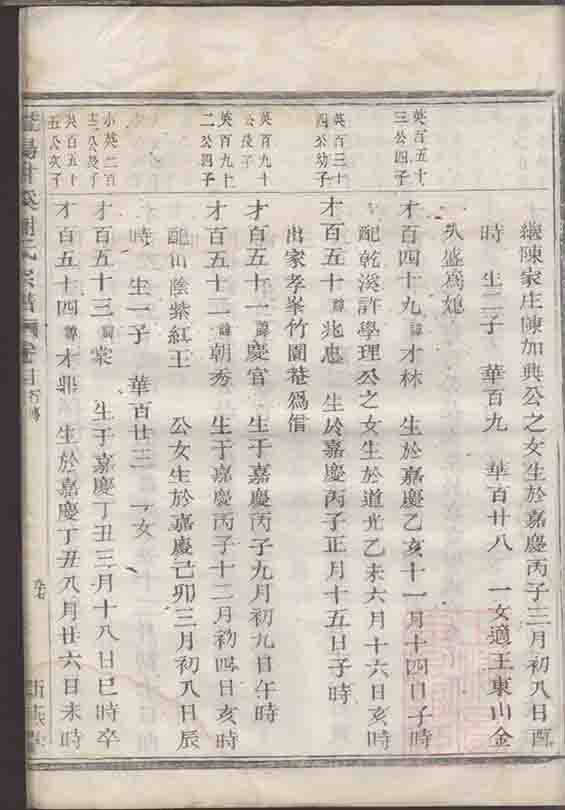 繼陳家庄陳加典公之女生於嘉慶丙子三月初八日酉
時 生二子 華百九 華百廿八 一女適王東山金
久盛爲媳
英百五十
三公四子
才百四十九諱才林 生於嘉慶乙亥十一月十四日子時
配乾溪許學理公之女生於道光乙未六月十六日亥時
英百三十
四公幼子
才百五十諱兆忠 生於嘉慶丙子正月十五日子時
出家孝峯竹園菴爲僧
英百九十
公茂子
才百五十一諱慶官 生于嘉慶丙子九月初九日午時
英百九十
二公四子
才百五十二諱朝秀 生于嘉慶丙子十二月初四日亥時
配山陰紫紅王 公女生於嘉慶己卯三月初八日辰
時 生一子 華百廿三 一女
小英二百
公長子
才百五十三諱棠 生于嘉慶丁丑三月十八日巳時卒
英百五十
五公次子
才百五十四諱才鼎 生於嘉慶丁丑八月廿六日未時
氏宗譜